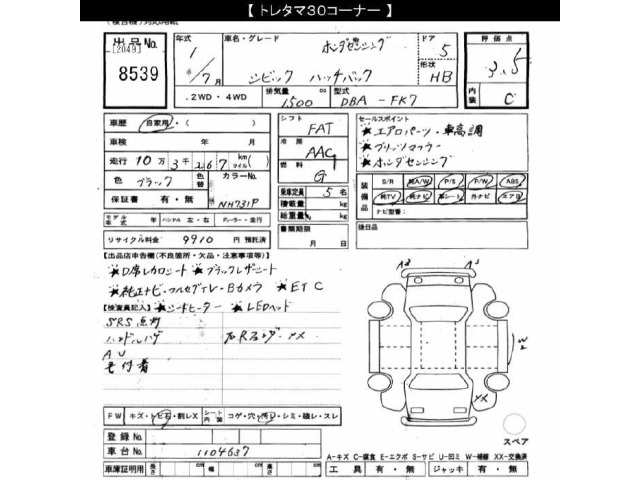 【 トレタマ30コーナー 】
出品No.
[2049]
8539
年式 車名・グレード ドア 評価点
1/7月 ホンダセンシング 5 3.5
シビック ハッチバック 形状 HB
.2WD・4WD 排気量 1500 cc 型式 DBA-FK7 内装 C
車歴 自家用・( )
車検 年 月
走行 10万3千267 km マイル ( )
色 ブラック 色替 カラーNo. NH731P
保証書 有・無
モデル年式 年 ハンドル 左・右 ディーラー・並行
リサイクル料金 9910 円 預託済
シフト FAT
冷房 AAC
燃料 G
乗車定員 5 名
積載量 kg
総重量 kg
書類期限
月 日
セールスポイント
★エアロパーツ・車高調
★ブリッツマフラー
★ホンダセンシング
装備品 S/R 純A/W P/S P/W ABS
純TV 純ナビ 革シート 外ナビ エアB
ナビ型番:
後日品
【出品店申告欄(不良箇所・欠品・注意事項等)】
★D席レカロシート ★ブラックレザーシート
★純正ナビ・フルセグTV・Bカメラ ★ETC
【検査員記入】 ★シートヒーター ★LEDヘッド
SRS点灯
ハンドルハゲ 右Rフェンダー XX
AU
A3 A3
W2
XX
FW キズ・トビ石・割レX シート内装 コゲ・穴・汚レ・シミ・破レ・スレ
登録No.
車台No. 1104637
車庫証明用 長さ cm 幅 cm 高さ cm
スペア
A-キズ C-腐食 E-エクボ S-サビ U-凹ミ W-補修 XX-交換済
工具 有・無 ジャッキ 有・無